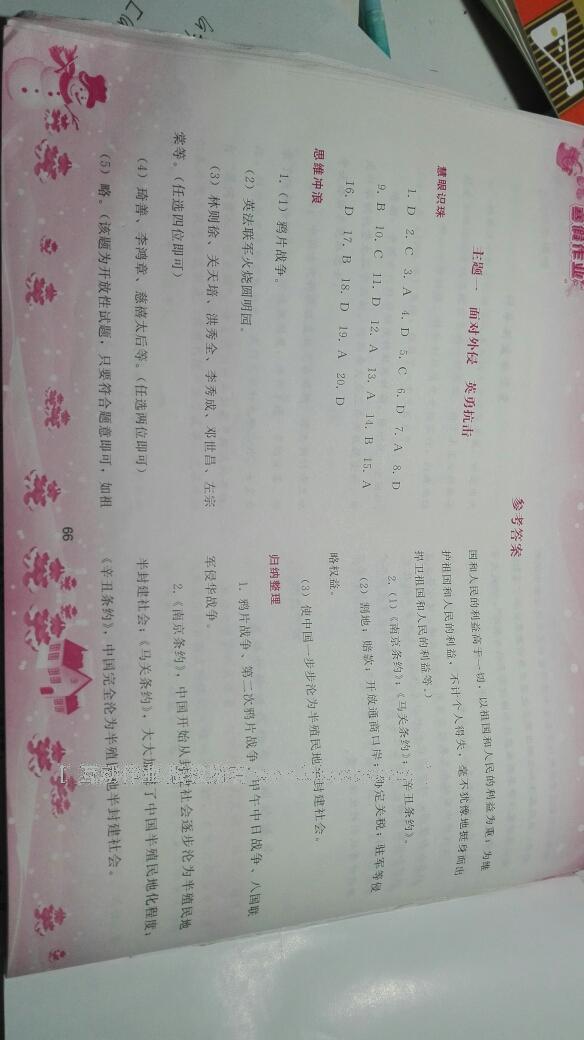 寒假作业
参考答案
主题一 面对外侵 英勇抗击
慧眼识珠
1. D 2. C 3. A 4. D 5. C 6. D 7. A 8. D
9. B 10. C 11. D 12. A 13. A 14. B 15. A
16. D 17. B 18. D 19. A 20. D
思维冲浪
1. (1) 鸦片战争。
(2) 英法联军火烧圆明园。
(3) 林则徐、关天培、洪秀全、李秀成、邓世昌、左宗
棠等。(任选四位即可)
(4) 琦善、李鸿章、慈禧太后等。(任选两位即可)
(5) 略。(该题为开放性试题，只要符合题意即可，如祖
国和人民的利益高于一切，以祖国和人民的利益为重；为维
护祖国和人民的利益，不计个人得失，毫不犹豫地挺身而出
捍卫祖国和人民的利益等。)
2. (1)《南京条约》；《马关条约》；《辛丑条约》。
(2) 割地；赔款；开放通商口岸；协定关税；驻军等侵
略权益。
(3) 使中国一步步沦为半殖民地半封建社会。
归纳整理
1. 鸦片战争、第二次鸦片战争、甲午中日战争、八国联
军侵华战争。
2.《南京条约》，中国开始从封建社会逐步沦为半殖民地
半封建社会；《马关条约》，大大加深了中国半殖民地化程度；
《辛丑条约》，中国完全沦为半殖民地半封建社会。
66